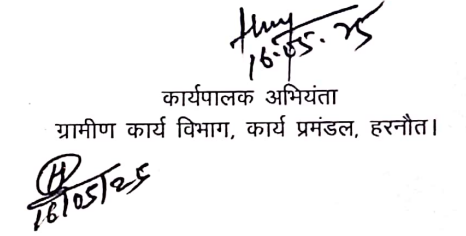 16.05.25
कार्यपालक अभियंता
ग्रामीण कार्य विभाग, कार्य प्रमंडल, हरनौत।
16/05/25